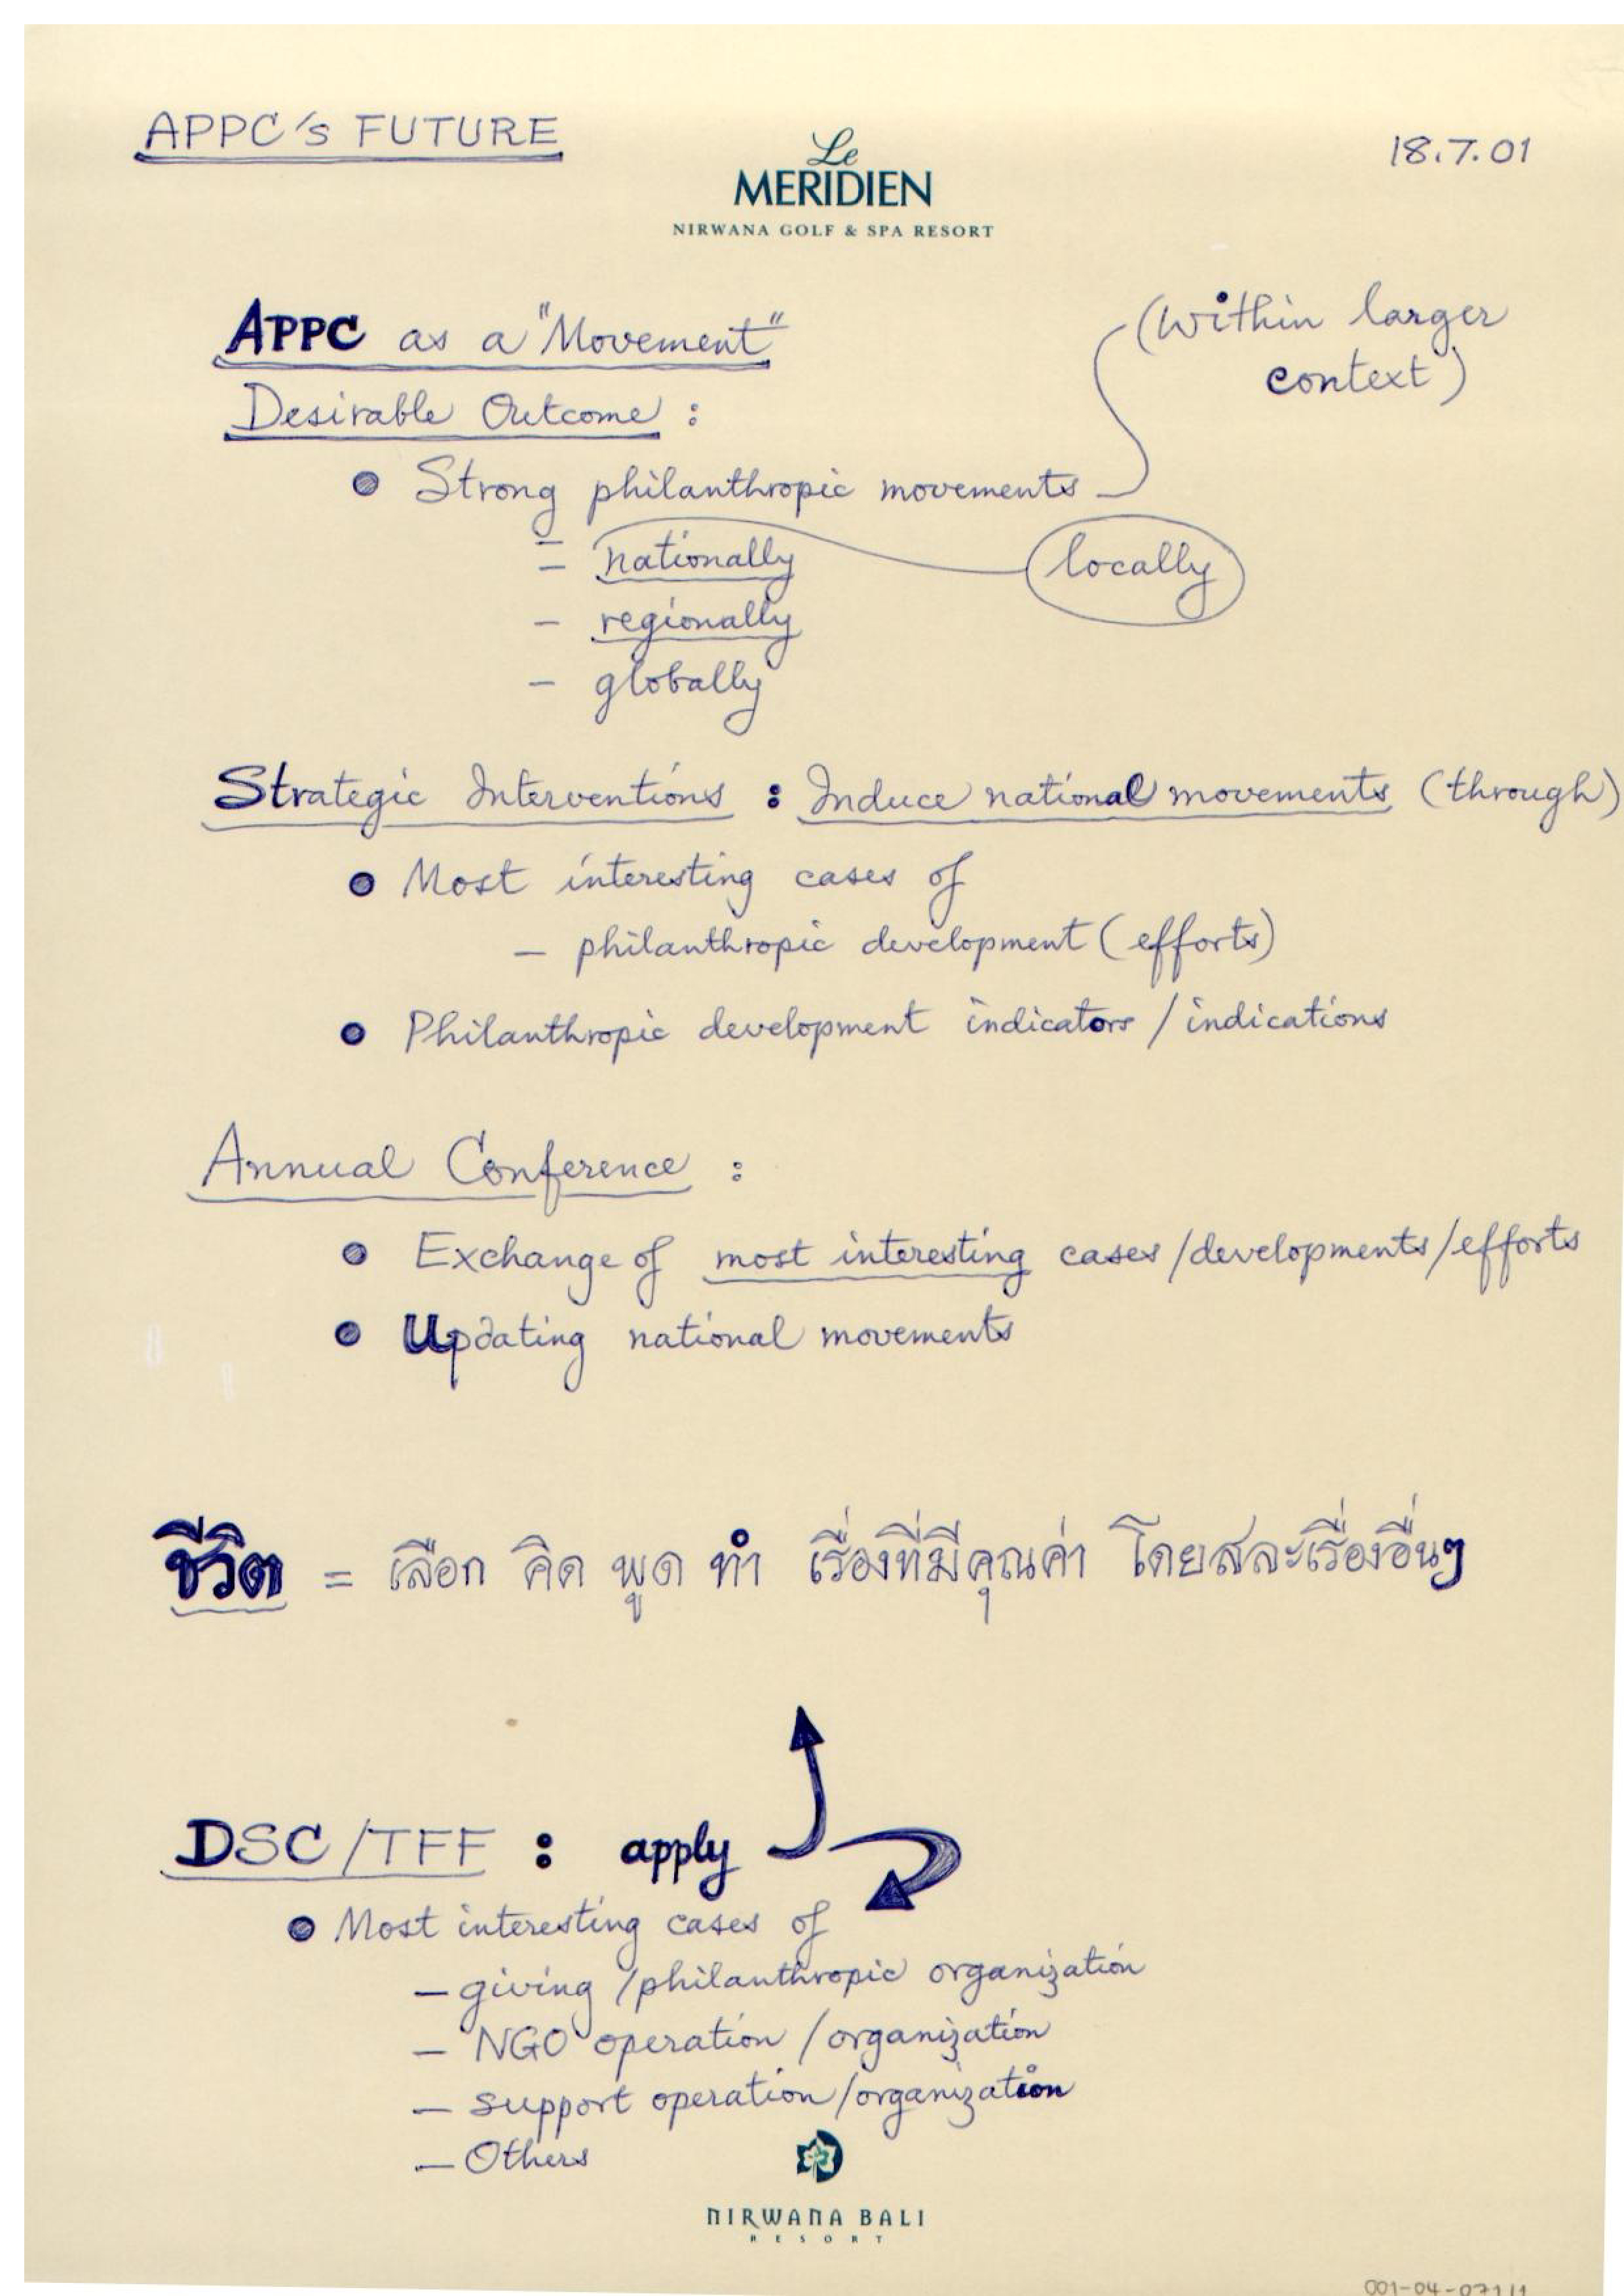 APPC's FUTURE
18.7.01
Le
MERIDIEN
NIRWANA GOLF & SPA RESORT
APPC as a "Movement"
(within larger
context)
Desirable Outcome :
• Strong philanthropic movements
– nationally
locally
– regionally
– globally
Strategic Interventions : Induce national movements (through)
• Most interesting cases of
– philanthropic development (efforts)
• Philanthropic development indicators / indications
Annual Conference :
• Exchange of most interesting cases/developments/efforts
• Updating national movements
ชีวิต = เลือก คิด พูด ทำ เรื่องที่มีคุณค่า โดยสละเรื่องอื่นๆ
DSC/TFF : apply
• Most interesting cases of
– giving /philanthropic organization
– NGO operation / organization
– support operation/organization
– Others
NIRWANA BALI
RESORT
001-04-071/1